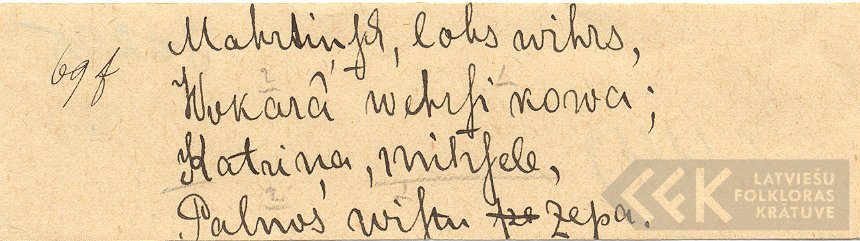 Mahrtiņſch, labs wihrs,
69f
Wakarâ wehrſi kawa;
Katriņa, mihſele,
Palnos wiſtu ze zepa.
LATVIEŠU
FOLKLORAS
KRĀTUVE